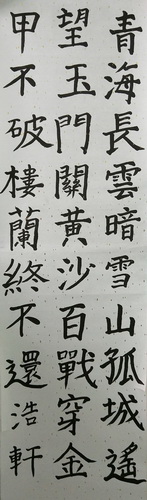 青海長雲暗雪山孤城遙
望玉門關黃沙百戰穿金
甲不破樓蘭終不還浩軒